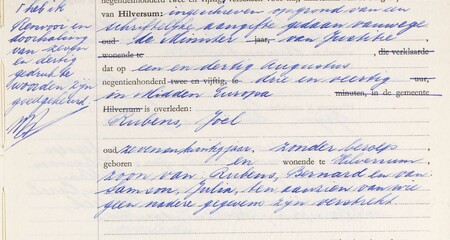 t het ik
Renvooi en
doorhaling
van zeven
en dertig
gedrukte
woorden zijn
goedgekeurd.
van Hilversum: ingeschreven op grond van een
schriftelijke aangifte gedaan vanwege
oud de Minister jaar, van Justitie
wonende te , die verklaarde
dat op een en dertig Augustus
negentienhonderd twee en vijftig, te drie en veertig uur,
in Midden Europa minuten, in de gemeente
Hilversum is overleden:
Rubens, Joel
oud zevenenkwintig jaar, zonder beroep,
geboren en wonende te Hilversum
zoon van: Rubens, Bernard en van
Samson, Julia, ten aanzien van wie
geen nadere gegevens zijn verstrekt.